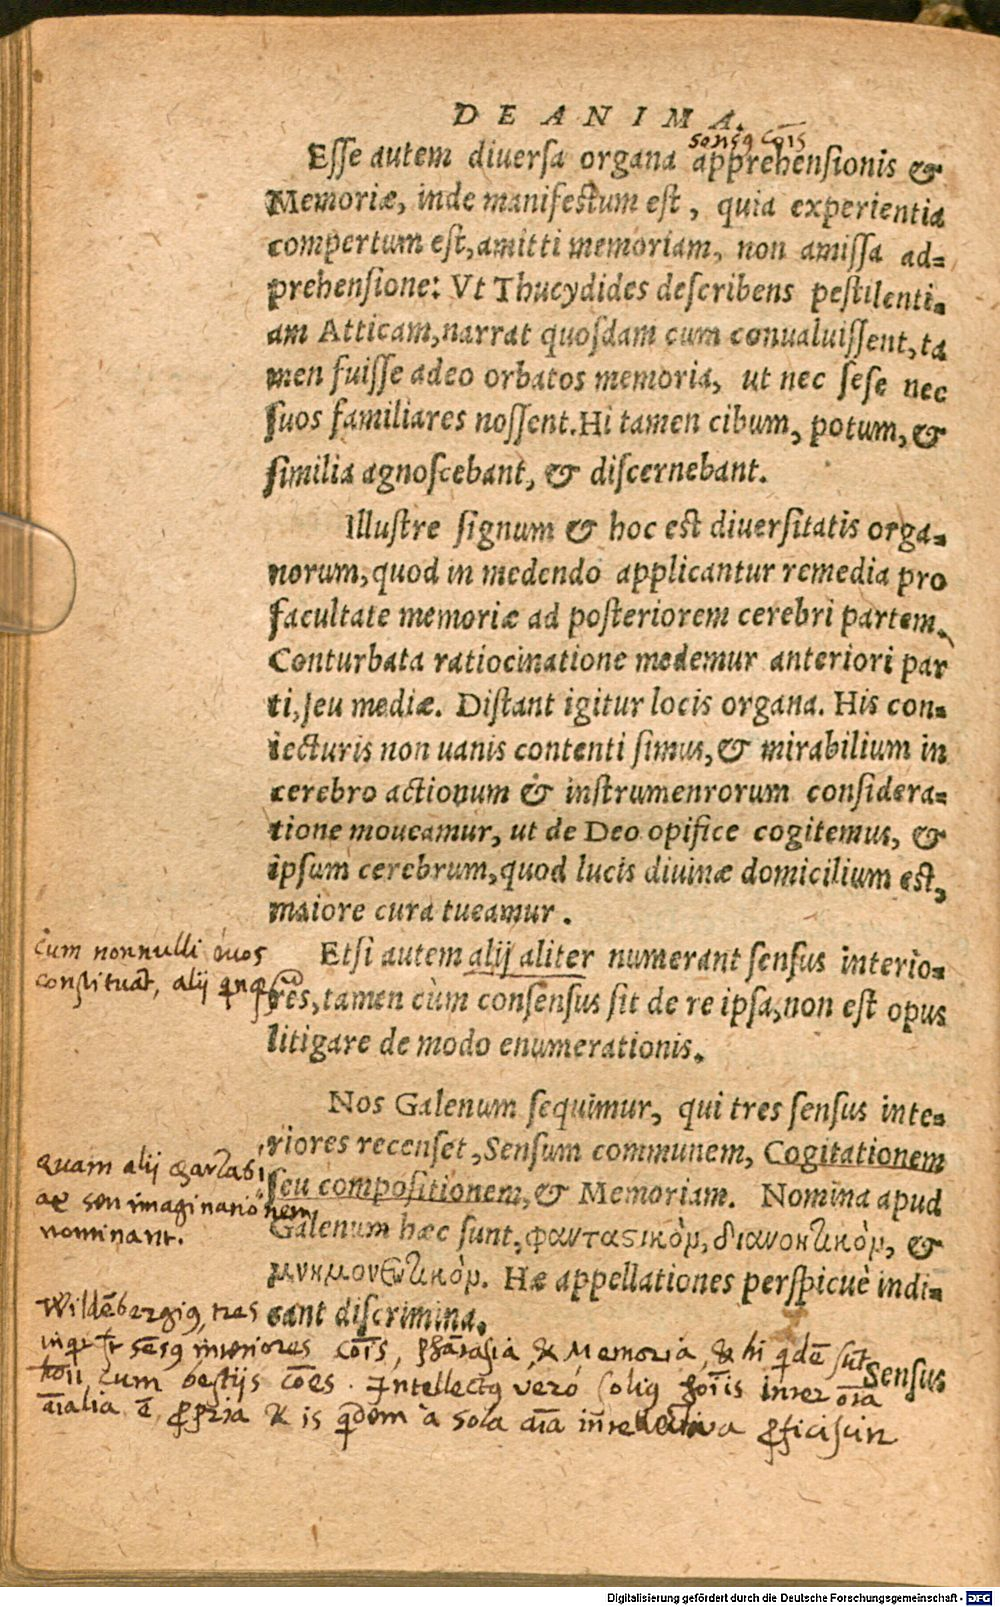 DE ANIMA.
sensꝯ cōis
Esse autem diuersa organa apprehensionis &
Memoriæ, inde manifestum est, quia experientia
compertum est, amitti memoriam, non amissa ad-
prehensione: Vt Thucydides describens pestilenti-
am Atticam, narrat quosdam cum conualuissent, ta
men fuisse adeo orbatos memoria, ut nec sese nec
suos familiares nossent. Hi tamen cibum, potum, &
similia agnoscebant, & discernebant.
Illustre signum & hoc est diuersitatis orga-
norum, quod in medendo applicantur remedia pro
facultate memoriæ ad posteriorem cerebri partem.
Conturbata ratiocinatione medemur anteriori par
ti, seu mediæ. Distant igitur locis organa. His con-
iecturis non uanis contenti simus, & mirabilium in
cerebro actionum & instrumenrorum considera-
tione moueamur, ut de Deo opifice cogitemus, &
ipsum cerebrum, quod lucis diuinæ domicilium est,
maiore cura tueamur.
cum nonnulli
constituāt, alij
Etsi autem alij aliter numerant sensus interio-
res, tamen cùm consensus sit de re ipsa, non est opus
litigare de modo enumerationis.
Nos Galenum sequimur, qui tres sensus inte-
riores recenset, Sensum communem, Cogitationem
seu compositionem, & Memoriam. Nomina apud
Galenum hæc sunt, φανταστικὸν, διανοητικὸν, &
μνημονευτικὸν. Hæ appellationes perspicuè indi-
cant discrimina.
quam alij
seu imaginationem
nominant.
Wildēbergiꝯ, tres
sēsꝯ interiores cōis, phātasia, & Memoria, & hi qdē sūt
cum bestijs cōes. Intellectꝯ verò soliꝯ hoīs inter oīa
aīalia ē ꝓpria & is qdem à sola aīa intellectiua
Sensus
Digitalisierung gefördert durch die Deutsche Forschungsgemeinschaft - DFG